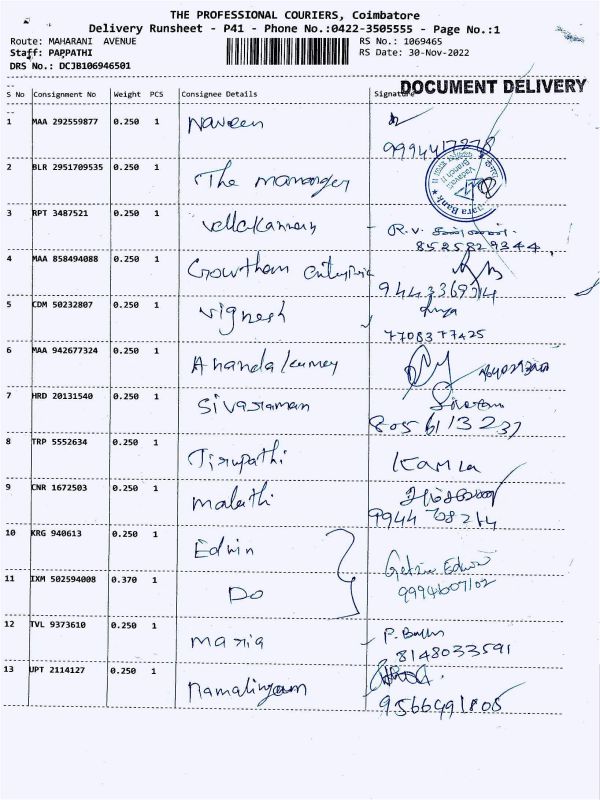 THE PROFESSIONAL COURIERS, Coimbatore
Delivery Runsheet - P41 - Phone No.:0422-3505555 - Page No.:1
Route: MAHARANI AVENUE
RS No.: 1069465
Staff: PAPPATHI
RS Date: 30-Nov-2022
DRS No.: DCJB106946501
DOCUMENT DELIVERY
S No Consignment No Weight PCS Consignee Details Signature
1 MAA 292559877 0.250 1 Naveen
2 BLR 2951709535 0.250 1 The manager
3 RPT 3487521 0.250 1 R.V.
8525829344
4 MAA 858494088 0.250 1 Gowtham
5 CDM 50232807 0.250 1 Vignesh
7708377425
6 MAA 942677324 0.250 1
7 HRD 20131540 0.250 1 Sivasraman
8056113237
8 TRP 5552634 0.250 1 Tirupathi Kamla
9 CNR 1672503 0.250 1 malathi
9944 708214
10 KRG 940613 0.250 1 Edwin
11 IXM 502594008 0.370 1 Do
9994607102
12 TVL 9373610 0.250 1 maria
8148033591
13 UPT 2114127 0.250 1 Ramalingam
9566491805